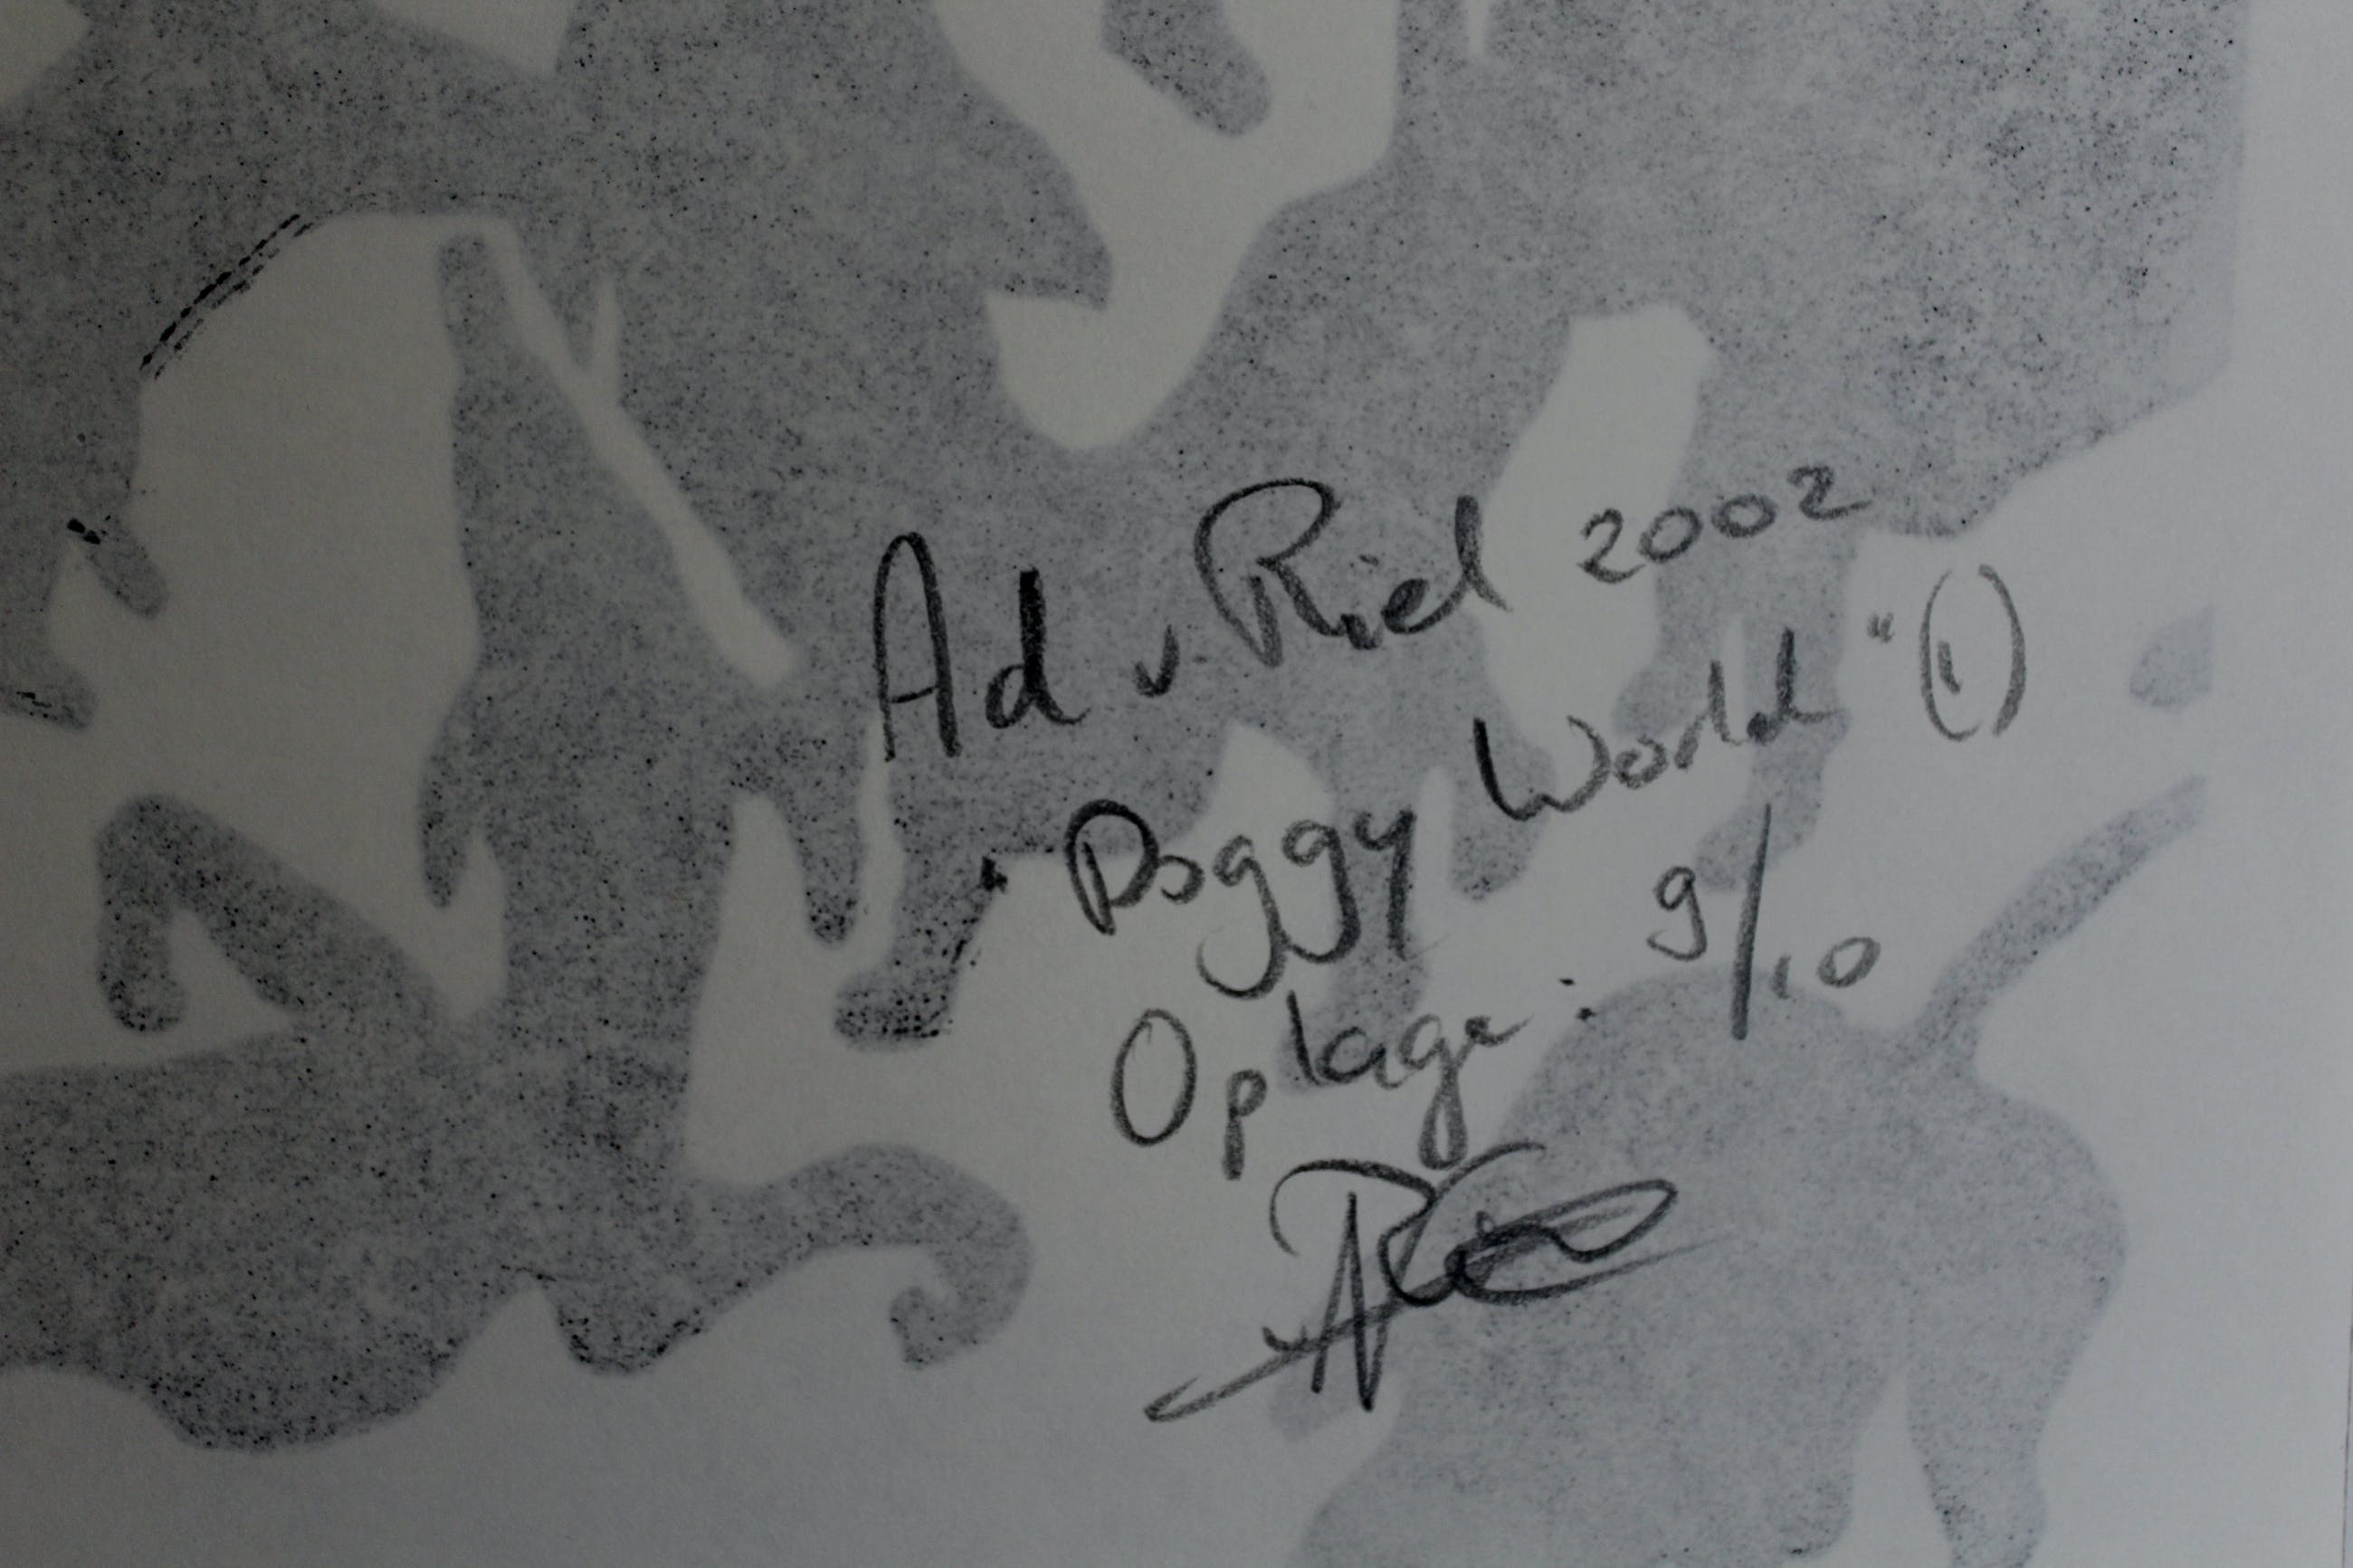 Ad v. Riel 2002
"Doggy World" (1)
Oplage: 9/10